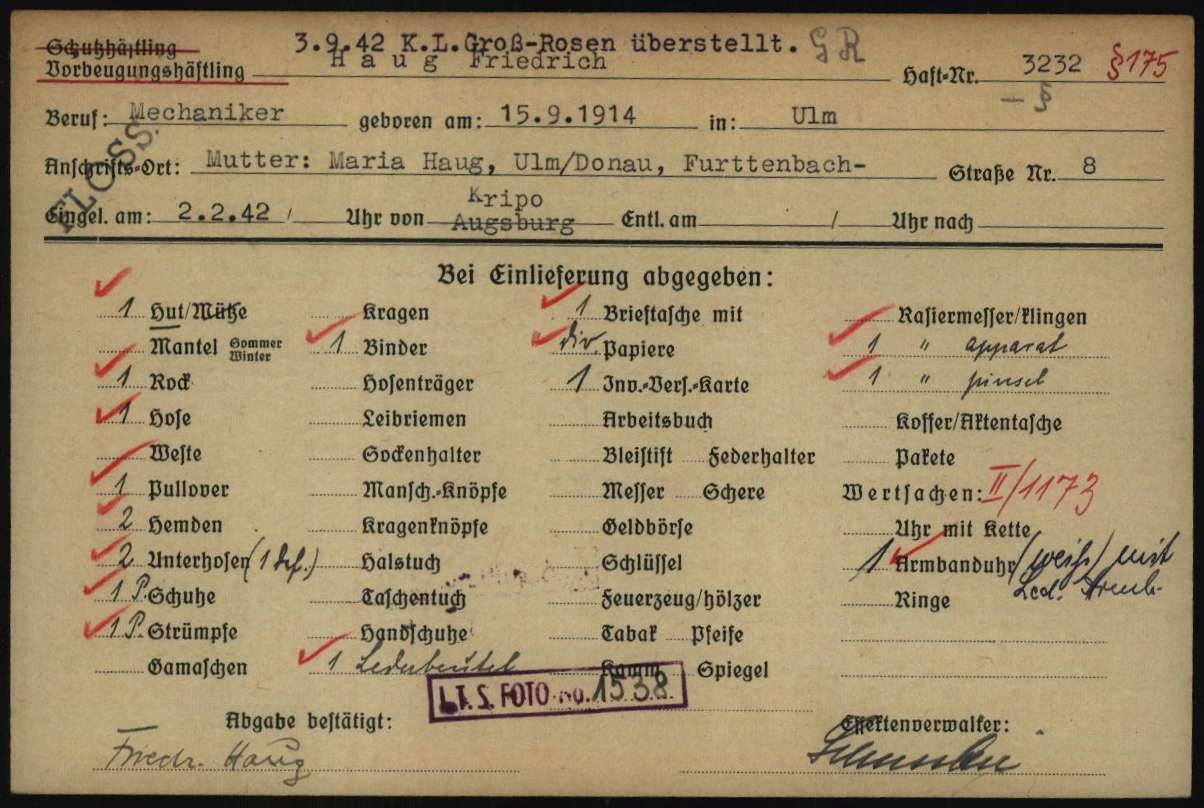 Schutzhäftling 3.9.42 K.L.Groß-Rosen überstellt. GR
Vorbeugungshäftling Haug Friedrich Haft-Nr. 3232 §175
– §
Beruf: Mechaniker geboren am: 15.9.1914 in: Ulm
FLOSS.
Anschrifts-Ort: Mutter: Maria Haug, Ulm/Donau, Furttenbach- Straße Nr. 8
Kripo
Eingel. am: 2.2.42 / Uhr von Augsburg Entl. am / Uhr nach
Bei Einlieferung abgegeben:
1 Hut/Mütze Kragen 1 Brieftasche mit Rasiermesser/klingen
Mantel Sommer Winter 1 Binder div. Papiere 1 " apparat
1 Rock Hosenträger 1 Inv.-Vers.-Karte 1 " pinsel
1 Hose Leibriemen Arbeitsbuch Koffer/Aktentasche
Weste Sockenhalter Bleistift Federhalter Pakete
1 Pullover Mansch.-Knöpfe Messer Schere Wertsachen: II/1173
2 Hemden Kragenknöpfe Geldbörse Uhr mit Kette
2 Unterhosen (1 def.) Halstuch Schlüssel 1 Armbanduhr (weiß) mit
Led. Armb.
1 P. Schuhe Taschentuch Feuerzeug/hölzer Ringe
1 P. Strümpfe Handschuhe Tabak Pfeife
Gamaschen 1 Lederbeutel Kamm Spiegel
I.T.S. FOTO No. 1538
Abgabe bestätigt: Effektenverwalter:
Friedr. Haug